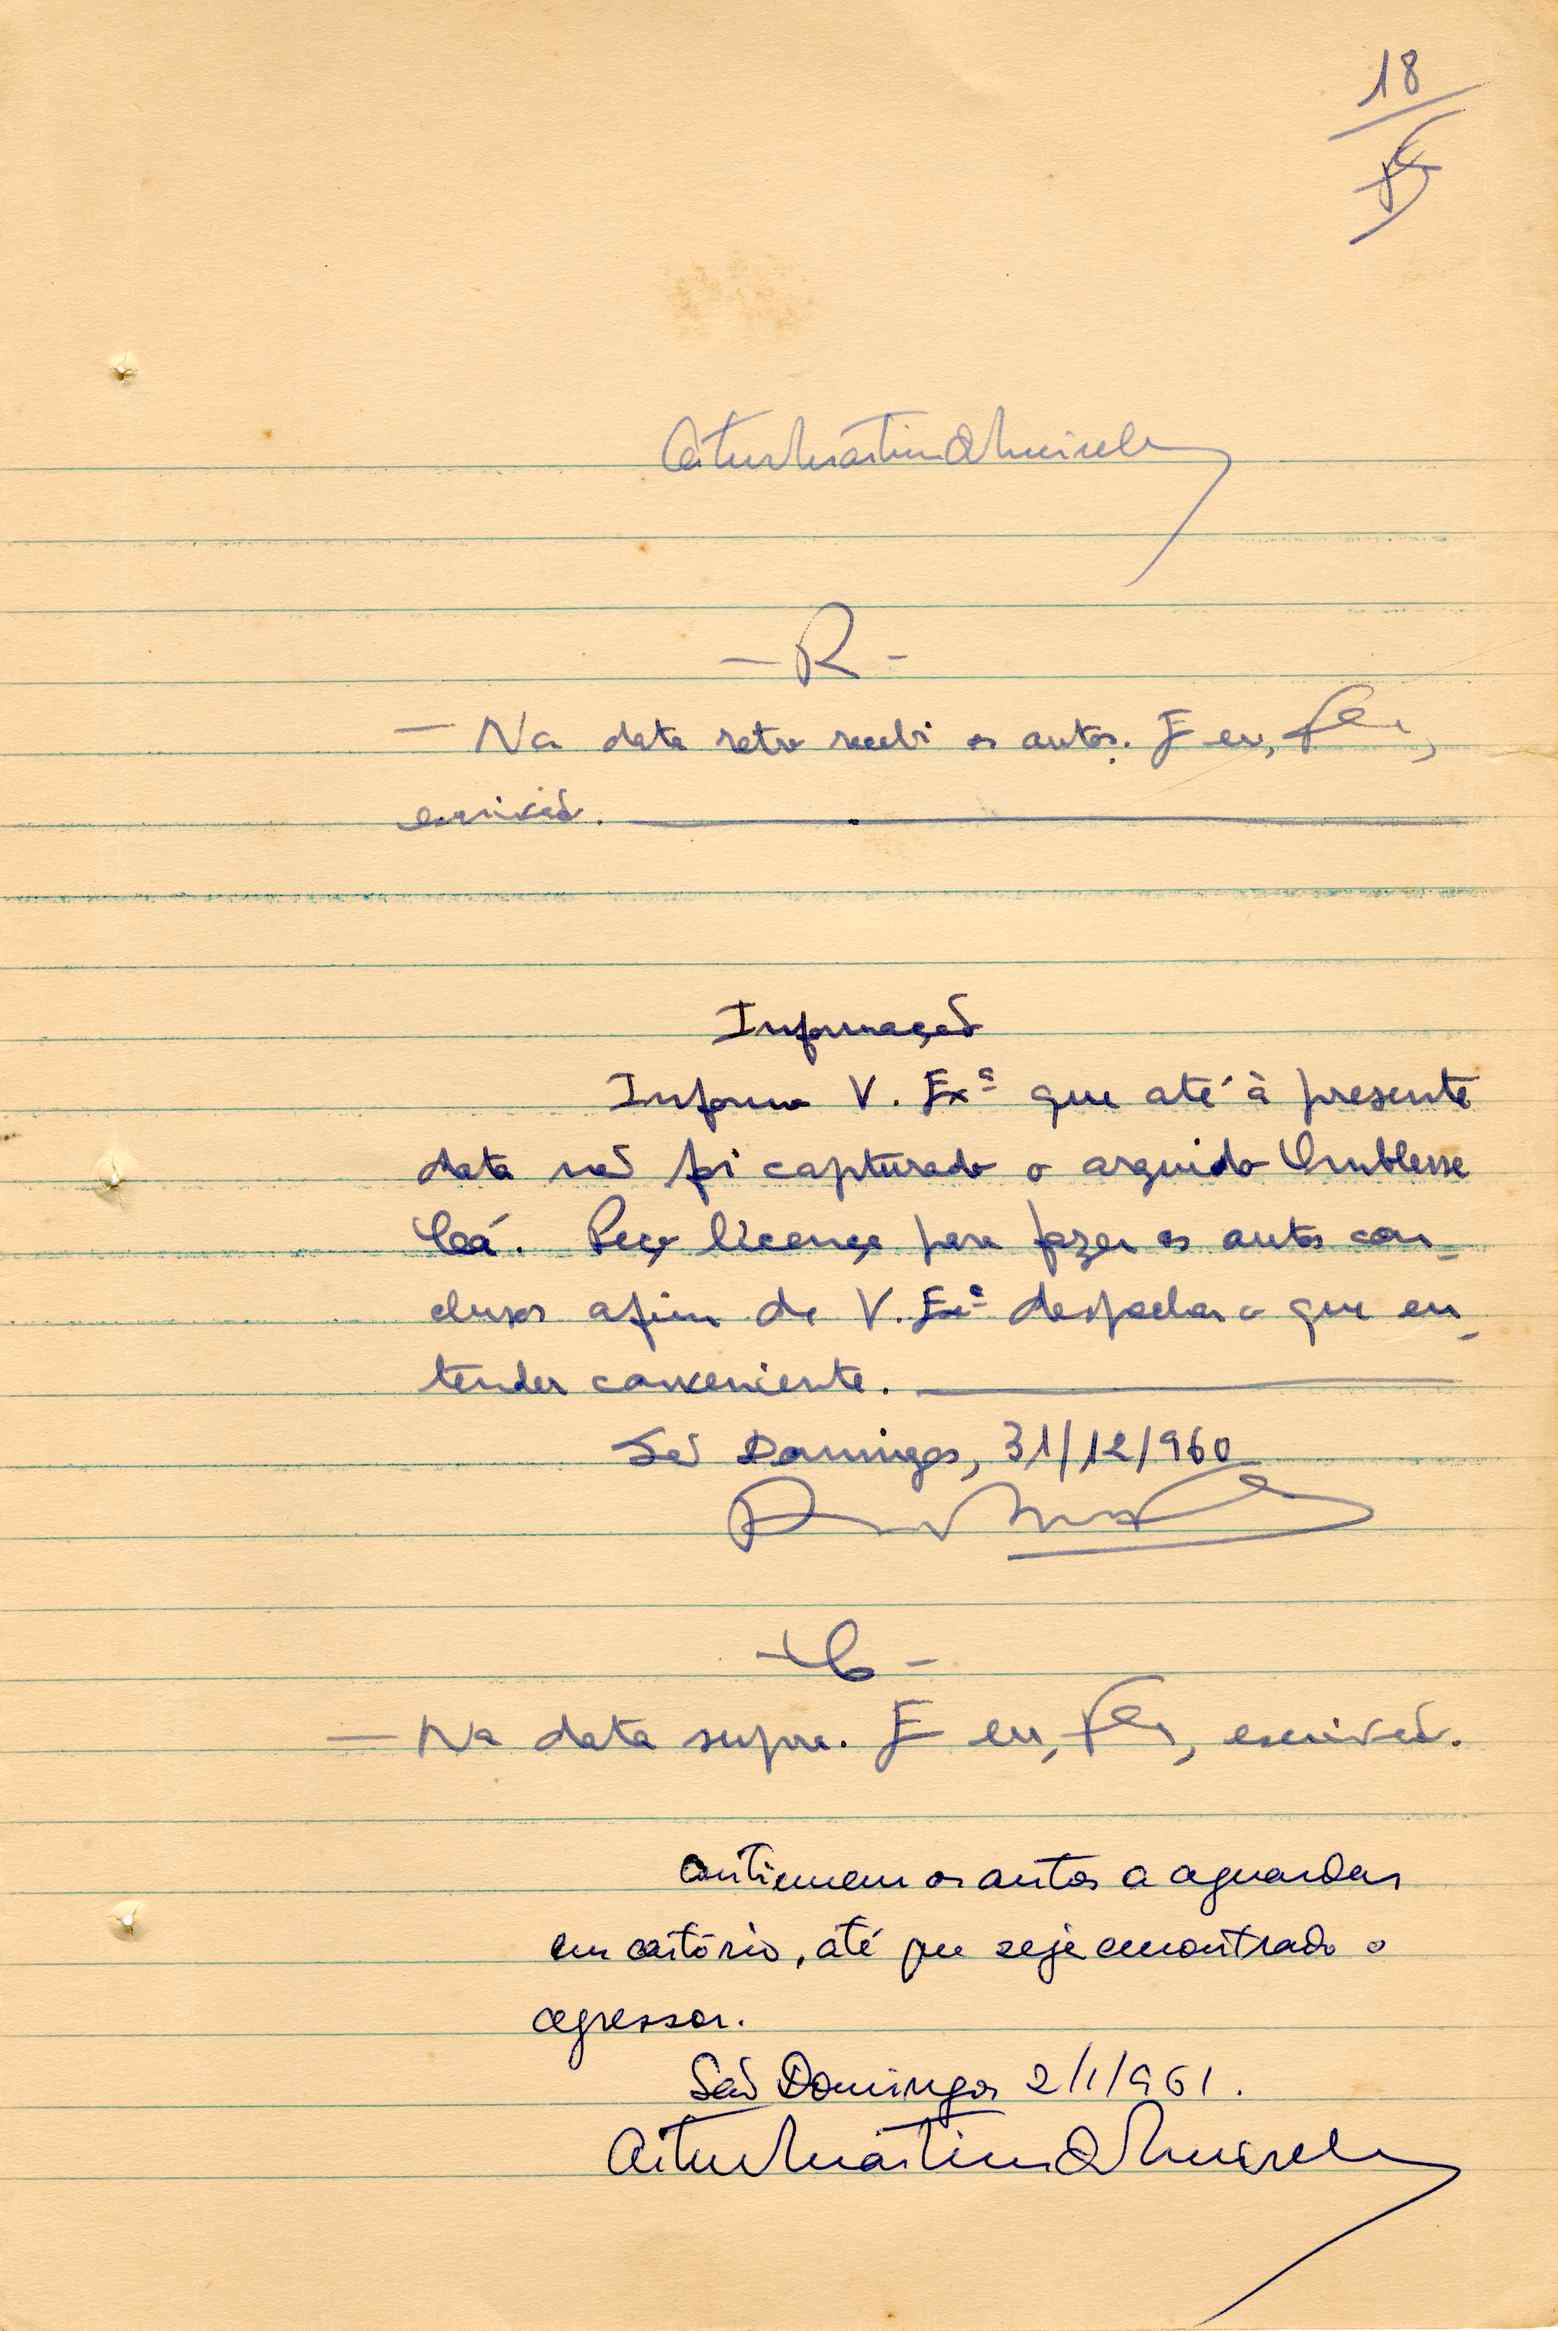 18
Artur Martins de Meireles
- R -
- Na data retro recebi os autos. E eu,
escrivão.
Informação
Informo V. Exª que até à presente
data não foi capturado o arguido Umblesse
Cá. Peço licença para fazer os autos con-
clusos afim de V. Exª despachar o que en-
tender conveniente.
São Domingos, 31/12/960
- C -
- Na data supra. E eu, escrivão.
Continuem os autos a aguardar
em cartório, até que seja encontrado o
agressor.
São Domingos 2/1/961.
Artur Martins de Meireles